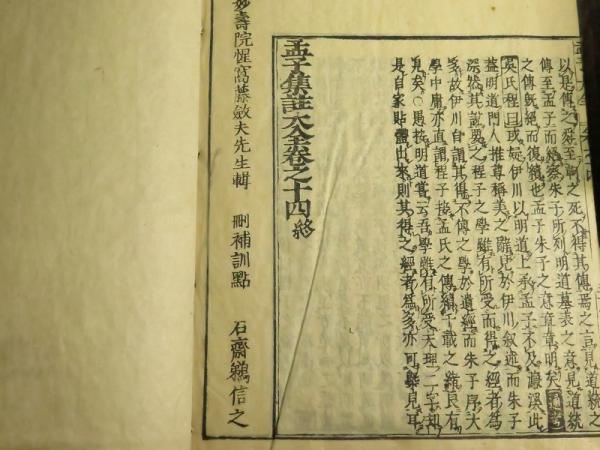 以是傳之舜至軻之死不得其傳焉之言見道統之
傳至孟子而絕察朱子所列明道墓表之意見道統
之傳既絕而復續也孟子朱子之意章章明矣
吳氏程曰或疑伊川以明道上承孟子不及濂溪此
蓋明道門人推尊稱美之雖見於伊川叙述而朱子
深然其說要之程子之學雖有所受而得之經者為
多故伊川自謂其得不傳之學於遺經而朱子序大
學中庸亦直謂程子接孟氏之傳續千載之統良有
見矣○愚按明道嘗云吾學雖有所受天理二字却
是自家貼體出來則其得之經者為多亦可槩見耳
孟子集註大全卷之十四終
妙壽院惺窩藤斂夫先生輯 刪補訓點 石齋鵜信之